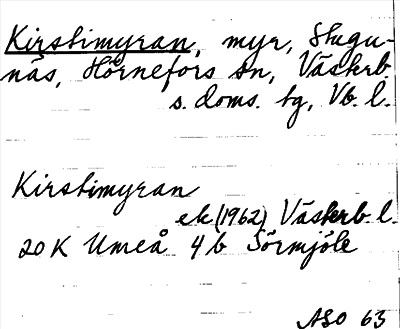 Kirstimyran, myr, Stugu-
näs, Hörnefors sn, Västerb.
s. doms. tg, Vb. l.
Kirstimyran
ek (1962) Västerb. l.
20 K Umeå 4 b Sörmjöle
ASO 63